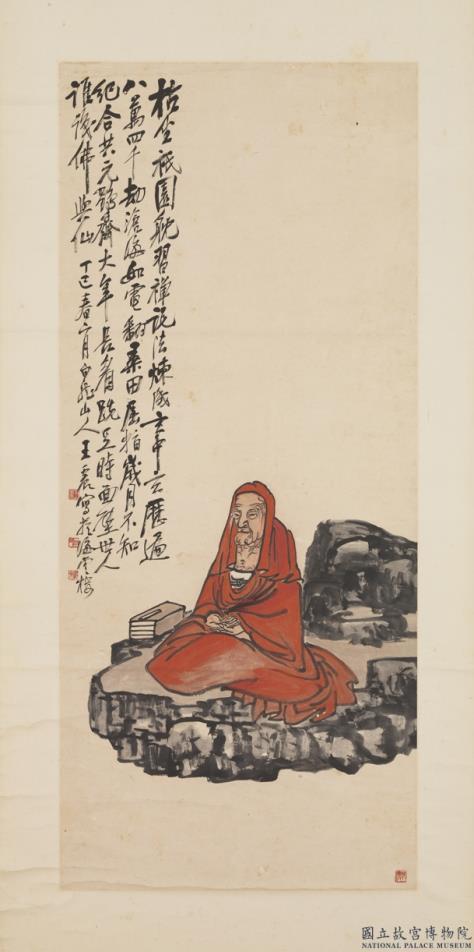 枯坐祇園耽習禪說法煉成玄中玄歷遍
八萬四千劫滄海如電翻桑田屈指歲月不知
紀合共元龜齊大年長眉跣足時面壁世人
誰識佛與仙 丁巳春二月白龍山人王震寫於海雲樓
國立故宮博物院
NATIONAL PALACE MUSEUM